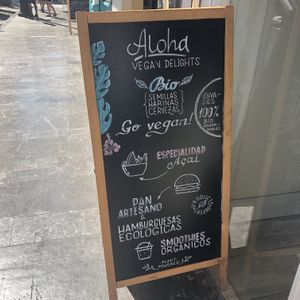 Aloha
VEGAN DELIGHTS
Bio
SEMILLAS
HARINAS
CERVEZAS
ENVASES
100%
BIO
Go vegan!
ESPECIALIDAD
Açaí
PAN
ARTESANO
&
HAMBURGUESAS
ECOLOGICAS
SMOOTHIES
ORGANICOS
PLANT
POWERED